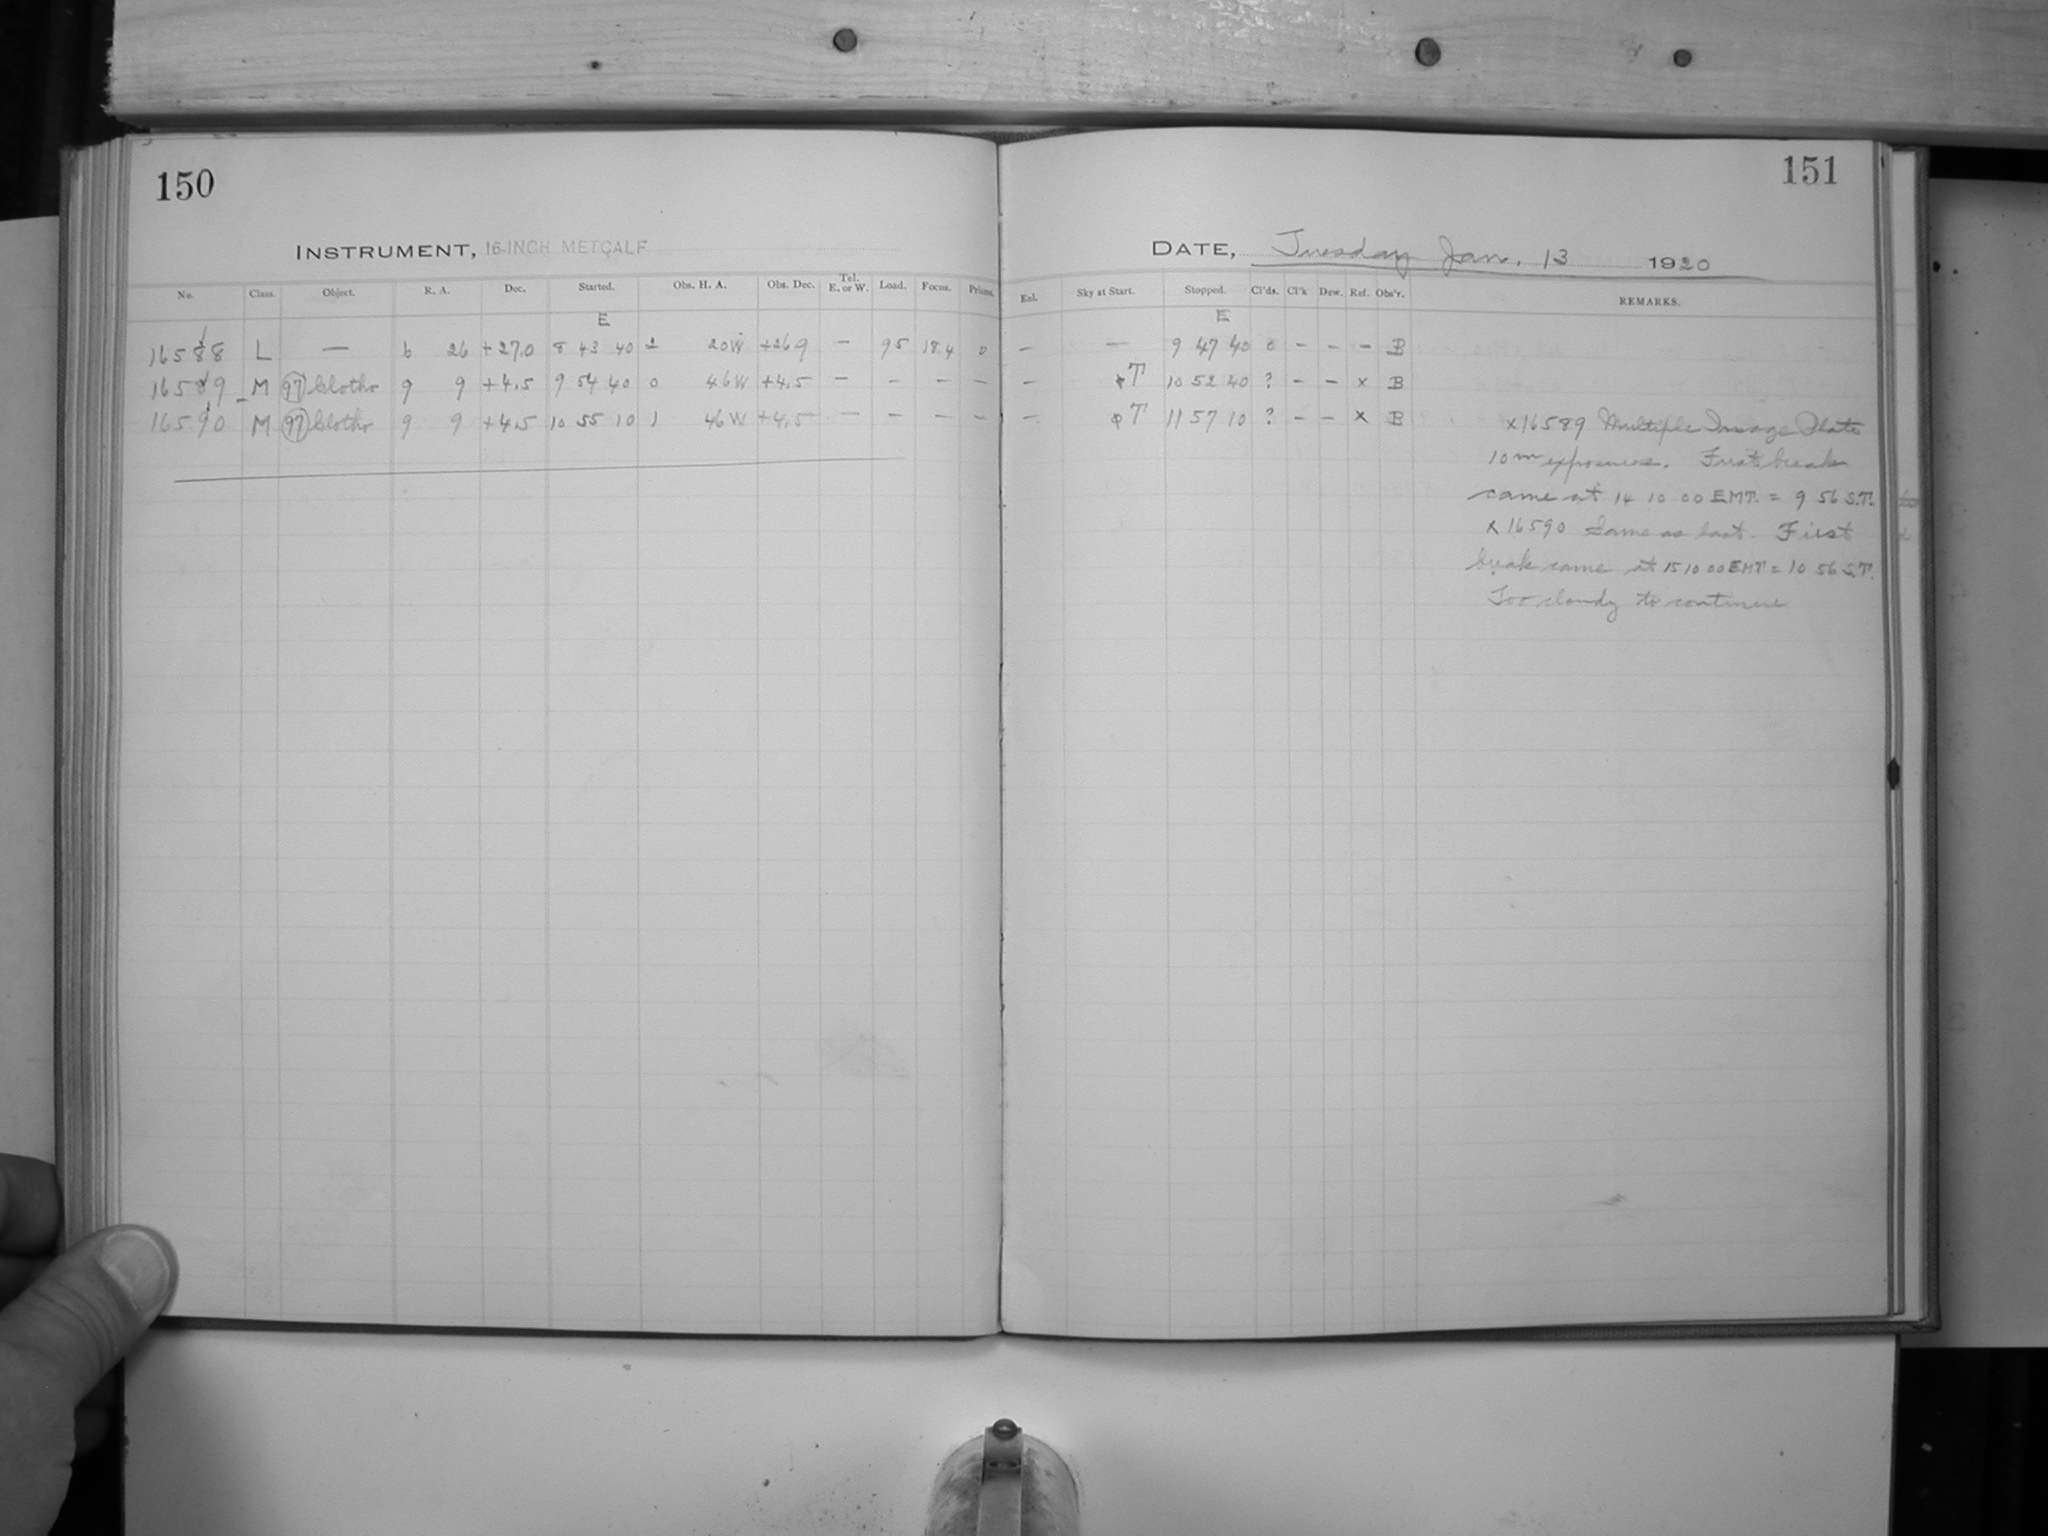 150
151
INSTRUMENT, 16-INCH METCALF
DATE, Tuesday Jan. 13 1920
No. Class. Object. R. A. Dec. Started. Obs. H. A. Obs. Dec. Tel. E. or W. Load. Focus. Prisms.
Eol. Sky at Start. Stopped. Cl'ds. Cl'k Dew. Ref. Obs'r. REMARKS.
E E
16588 L — 6 26 +27.0 8 43 40 2 20W +26 9 — 95 18.4 0 — — 9 47 40 0 – – – B
16589 M 97 Clotho 9 9 +4.5 9 54 40 0 46W +4.5 – – – – – T 10 52 40 ? – – x B
16590 M 97 Clotho 9 9 +4.5 10 55 10 1 46W +4.5 – – – – – T 11 57 10 ? – – x B
x16589 Multiple Image Plate
10m exposures. First break
came at 14 10 00 EMT. = 9 56 S.T.
x16590 Same as last. First
break came at 15 10 00 EMT = 10 56 S.T.
Too cloudy to continue